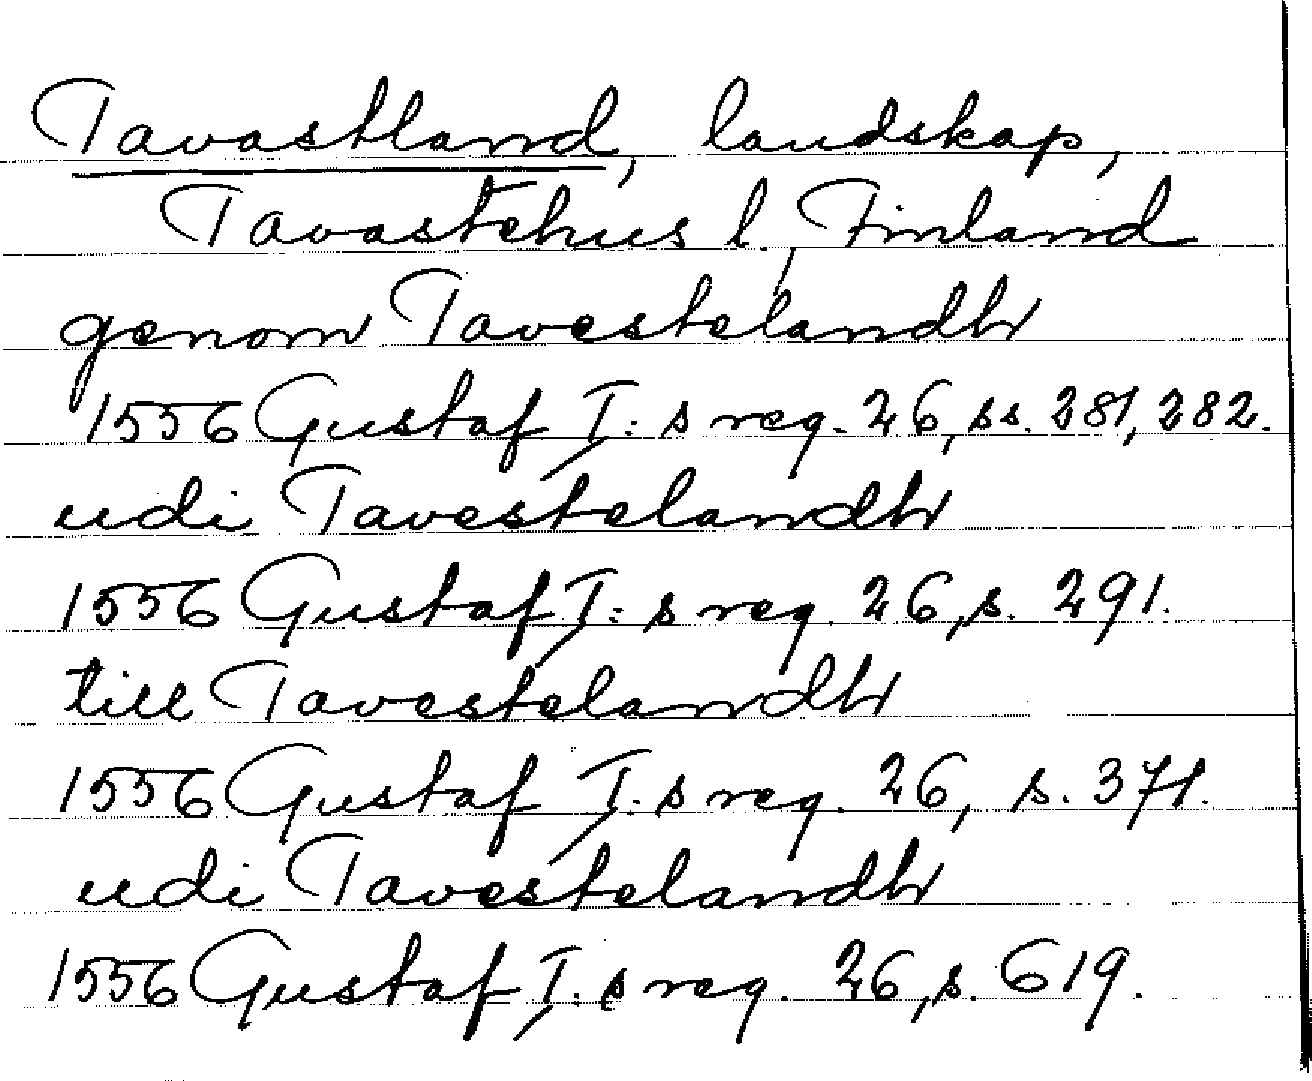 Tavastland, landskap,
Tavastehus l., Finland
genom Tavestelandh
1556 Gustaf I: s reg. 26, ss. 281, 282.
udi Tavestelandh
1556 Gustaf I: s reg. 26, s. 291.
till Tavestelandh
1556 Gustaf I. s reg. 26, s. 371.
udi Tavestelandh
1556 Gustaf I. s reg. 26, s. 619.